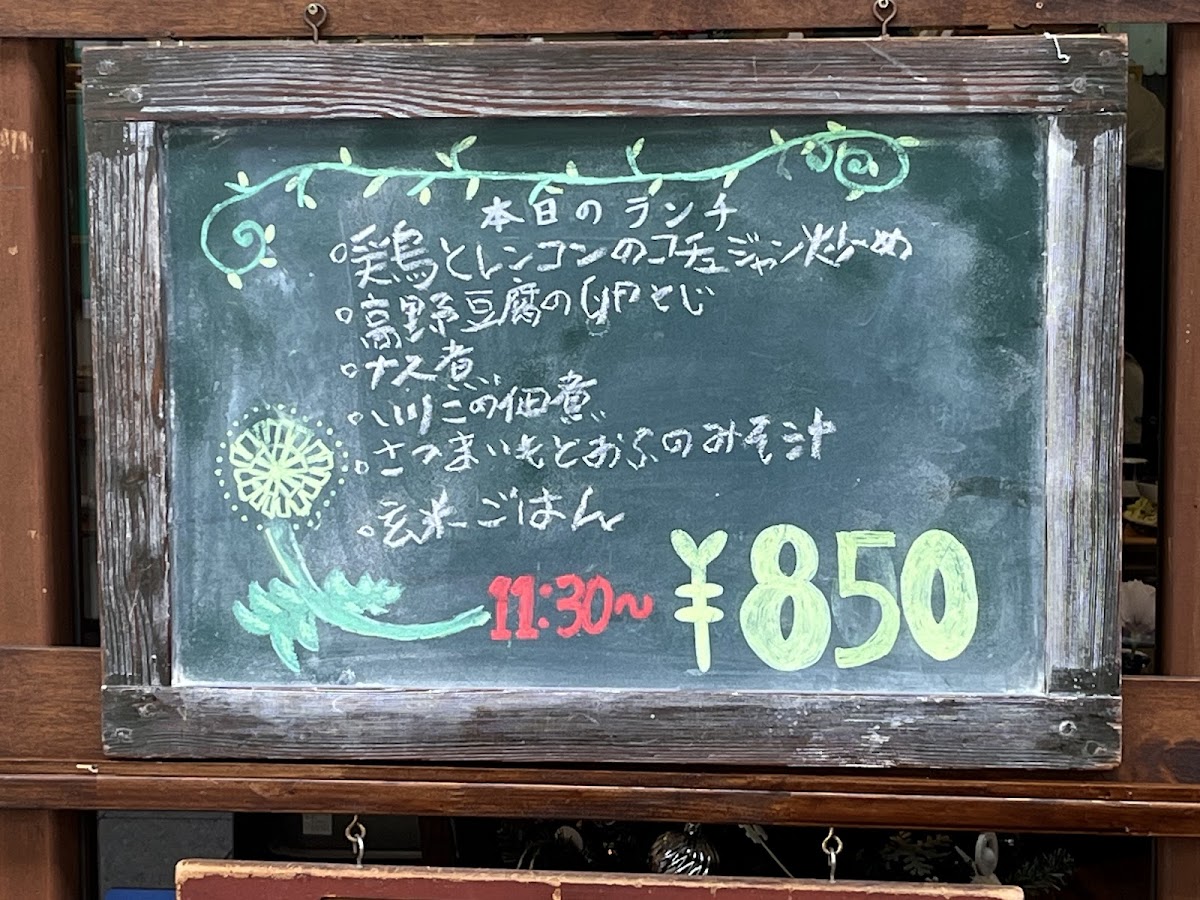 本日のランチ
。鶏とレンコンのコチュジャン炒め
。高野豆腐の卵とじ
。ナス煮
。小川ごの佃煮
。さつまいもとおふのみそ汁
。玄米ごはん
11:30〜
¥850